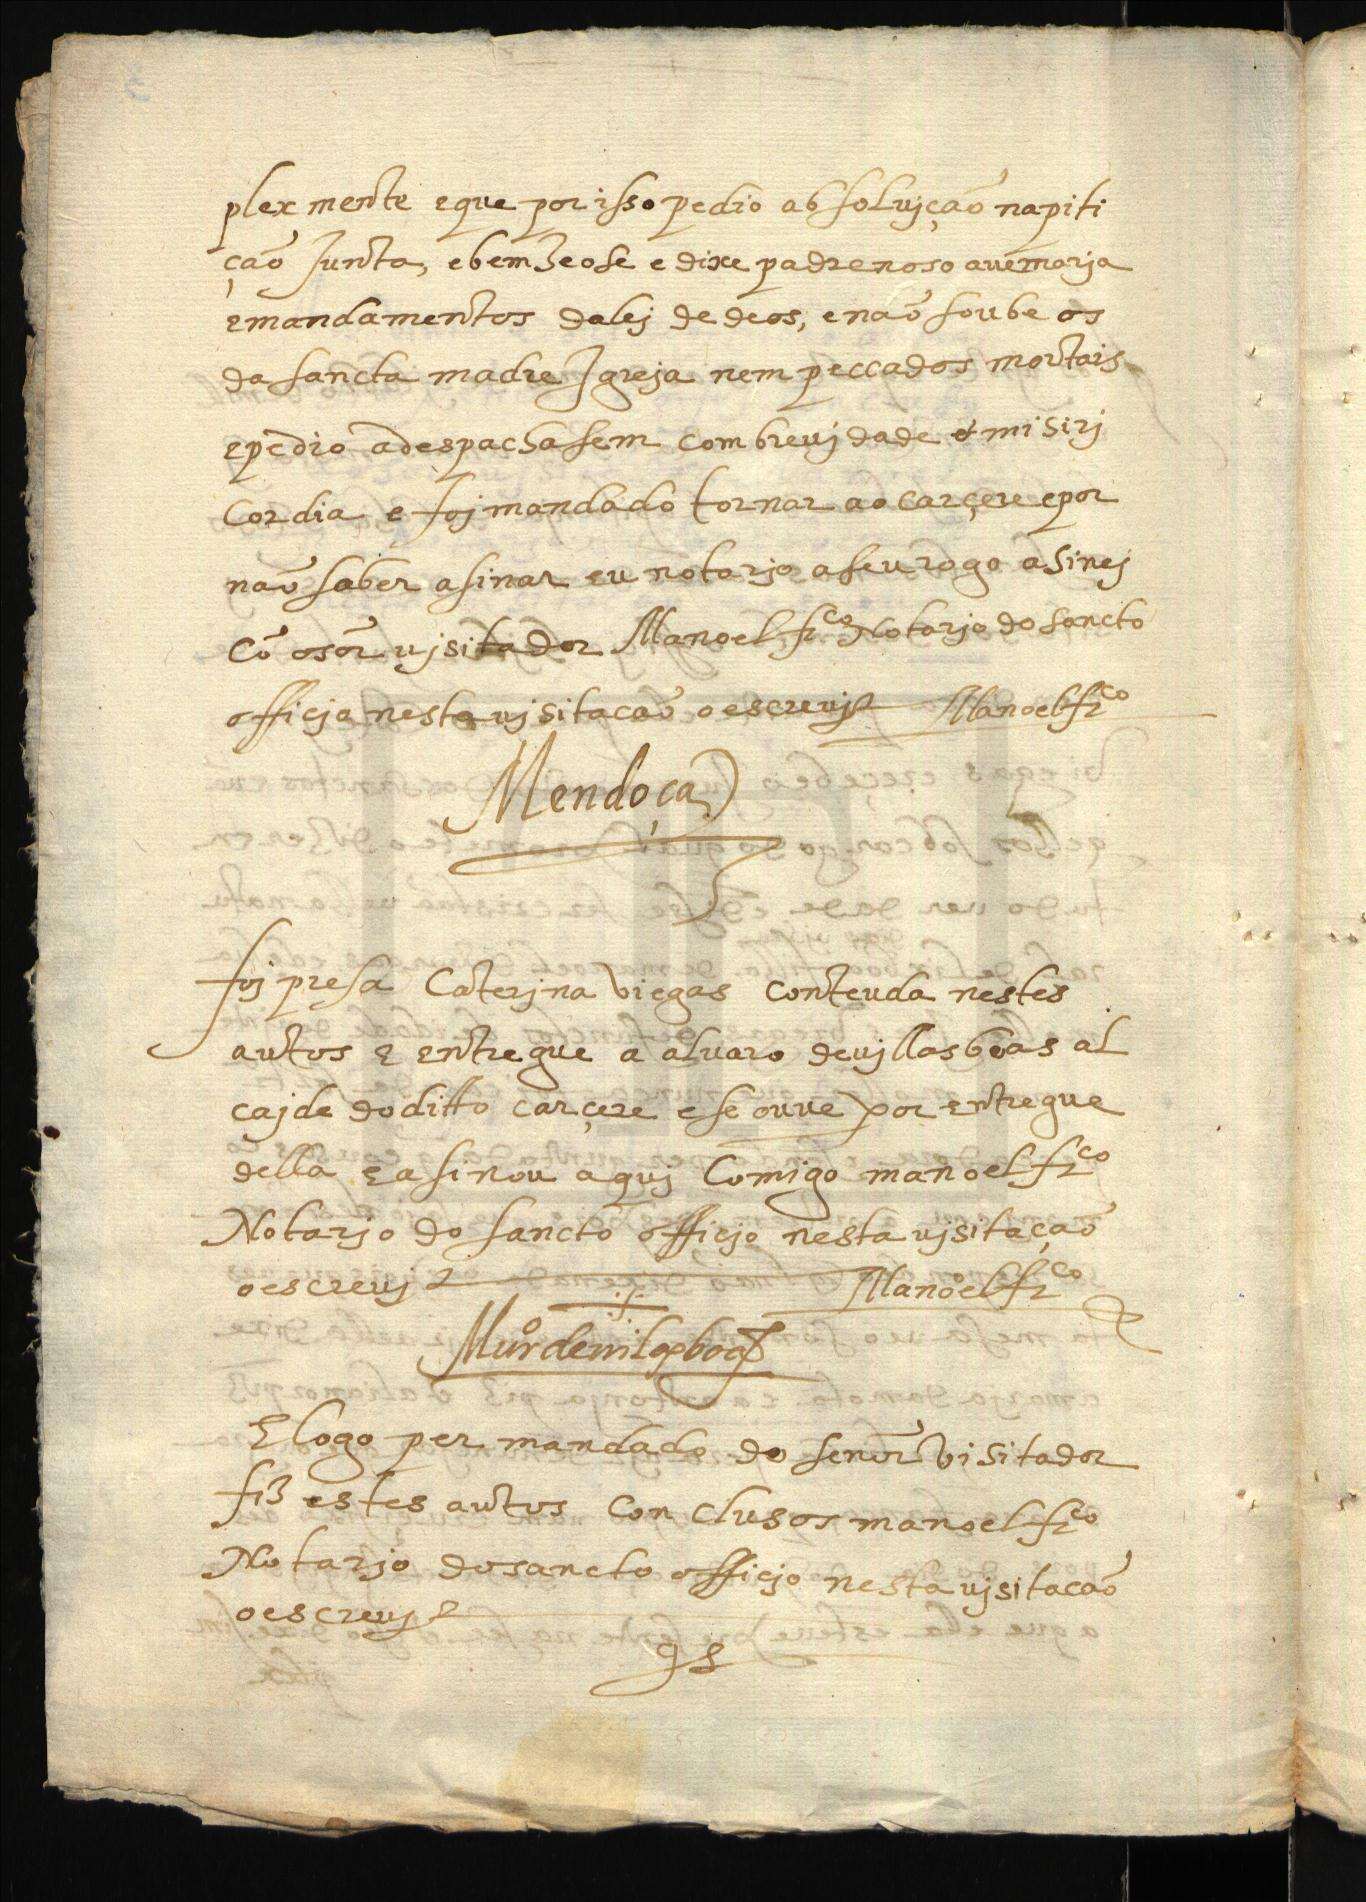 plexmente eque por isso pedio absolujção napiti
ção Junta, ebemzeose e dixe padrenoso auemarja
emandamentos dalej de deos, enão soube os
da sancta madre Igreja nem peccados mortais
epedio adespachasem com breujdade & misirj
cordia e foj mandado tornar ao carçere epor
não saber asinar eu notarjo aseu rogo asinej
cõ osor ujsitador Manoel frco Notarjo do sancto
officjo nesta ujsitacão oescreuj Manoel frco
Mendoça
foj presa Caterjna viegas conteuda nestes
autos e entregue a aluaro deujllasboas al
cajde do ditto carçere ese ouue por entregue
della easinou aquj comigo manoel frco
Notarjo do sancto officjo nesta ujsitação
oescreuj Manoel frco
E logo per mandado do senor visitador
fiz estes autos conclusos manoel frco
Notarjo dosancto officjo nesta ujsitacão
oescreuj